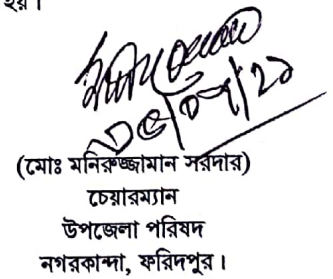 হয়।
(মোঃ মনিরুজ্জামান সরদার)
চেয়ারম্যান
উপজেলা পরিষদ
নগরকান্দা, ফরিদপুর।